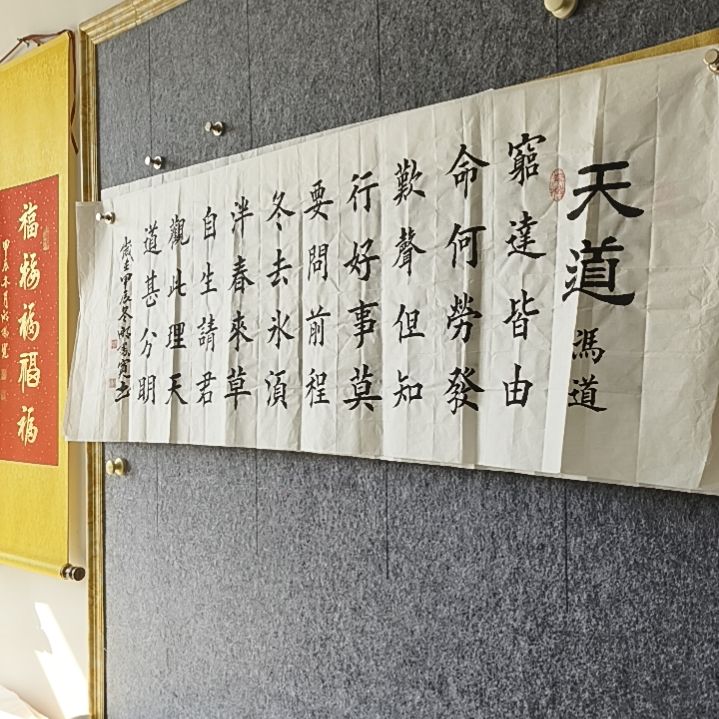 天道
馮道
窮達皆由
命何勞發
歎聲但知
行好事莫
要問前程
冬去氷須
泮春來草
自生請君
觀此理天
道甚分明
福福福福福